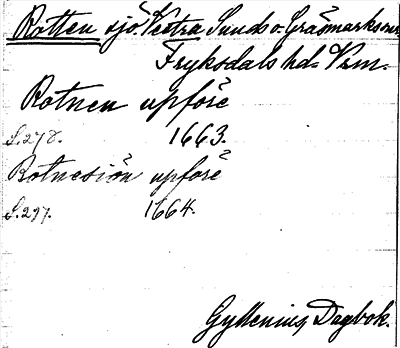 Rotten sjö. Västra Sunds o. Gräsmarks snr
Fryksdals hd. Vrm.
Rotnen upföre
S. 278. 1663.
Rotnesiön upföre
S. 297. 1664.
Gyllenius, Dagbok.